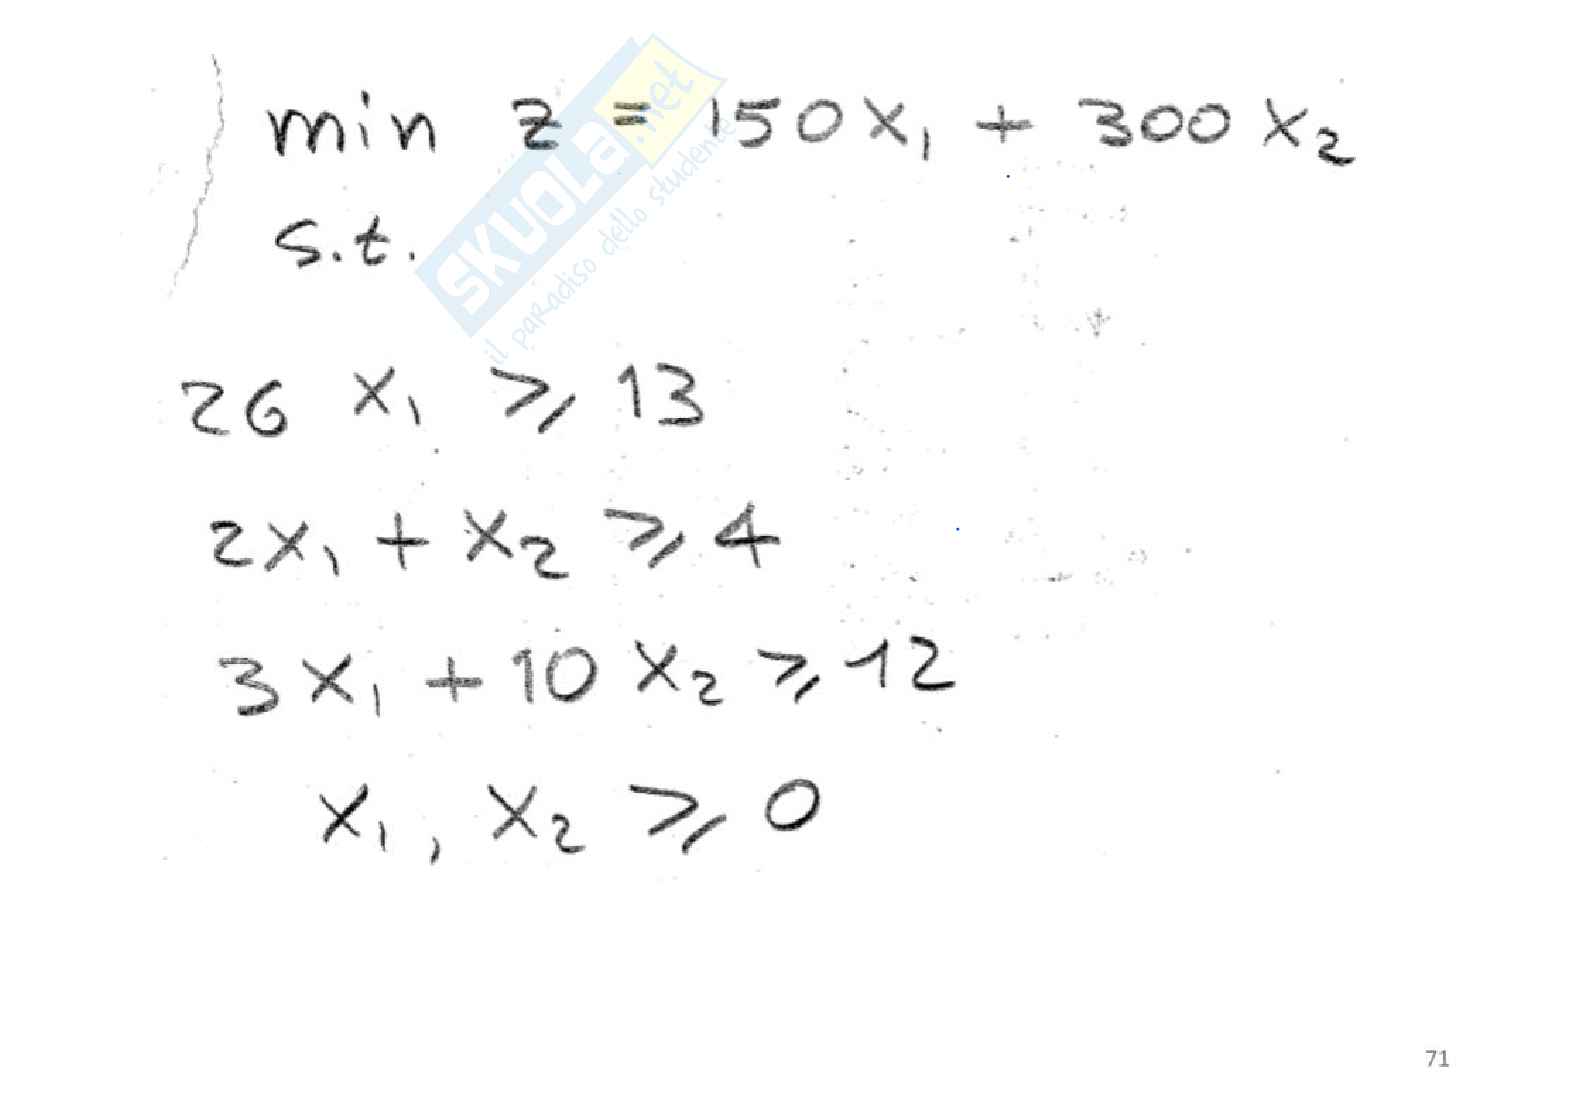 min z = 150 x₁ + 300 x₂
s.t.
26 x₁ ⩾ 13
2x₁ + x₂ ⩾ 4
3x₁ + 10 x₂ ⩾ 12
x₁, x₂ ⩾ 0
SKUOLA.net
il paradiso dello studente
71